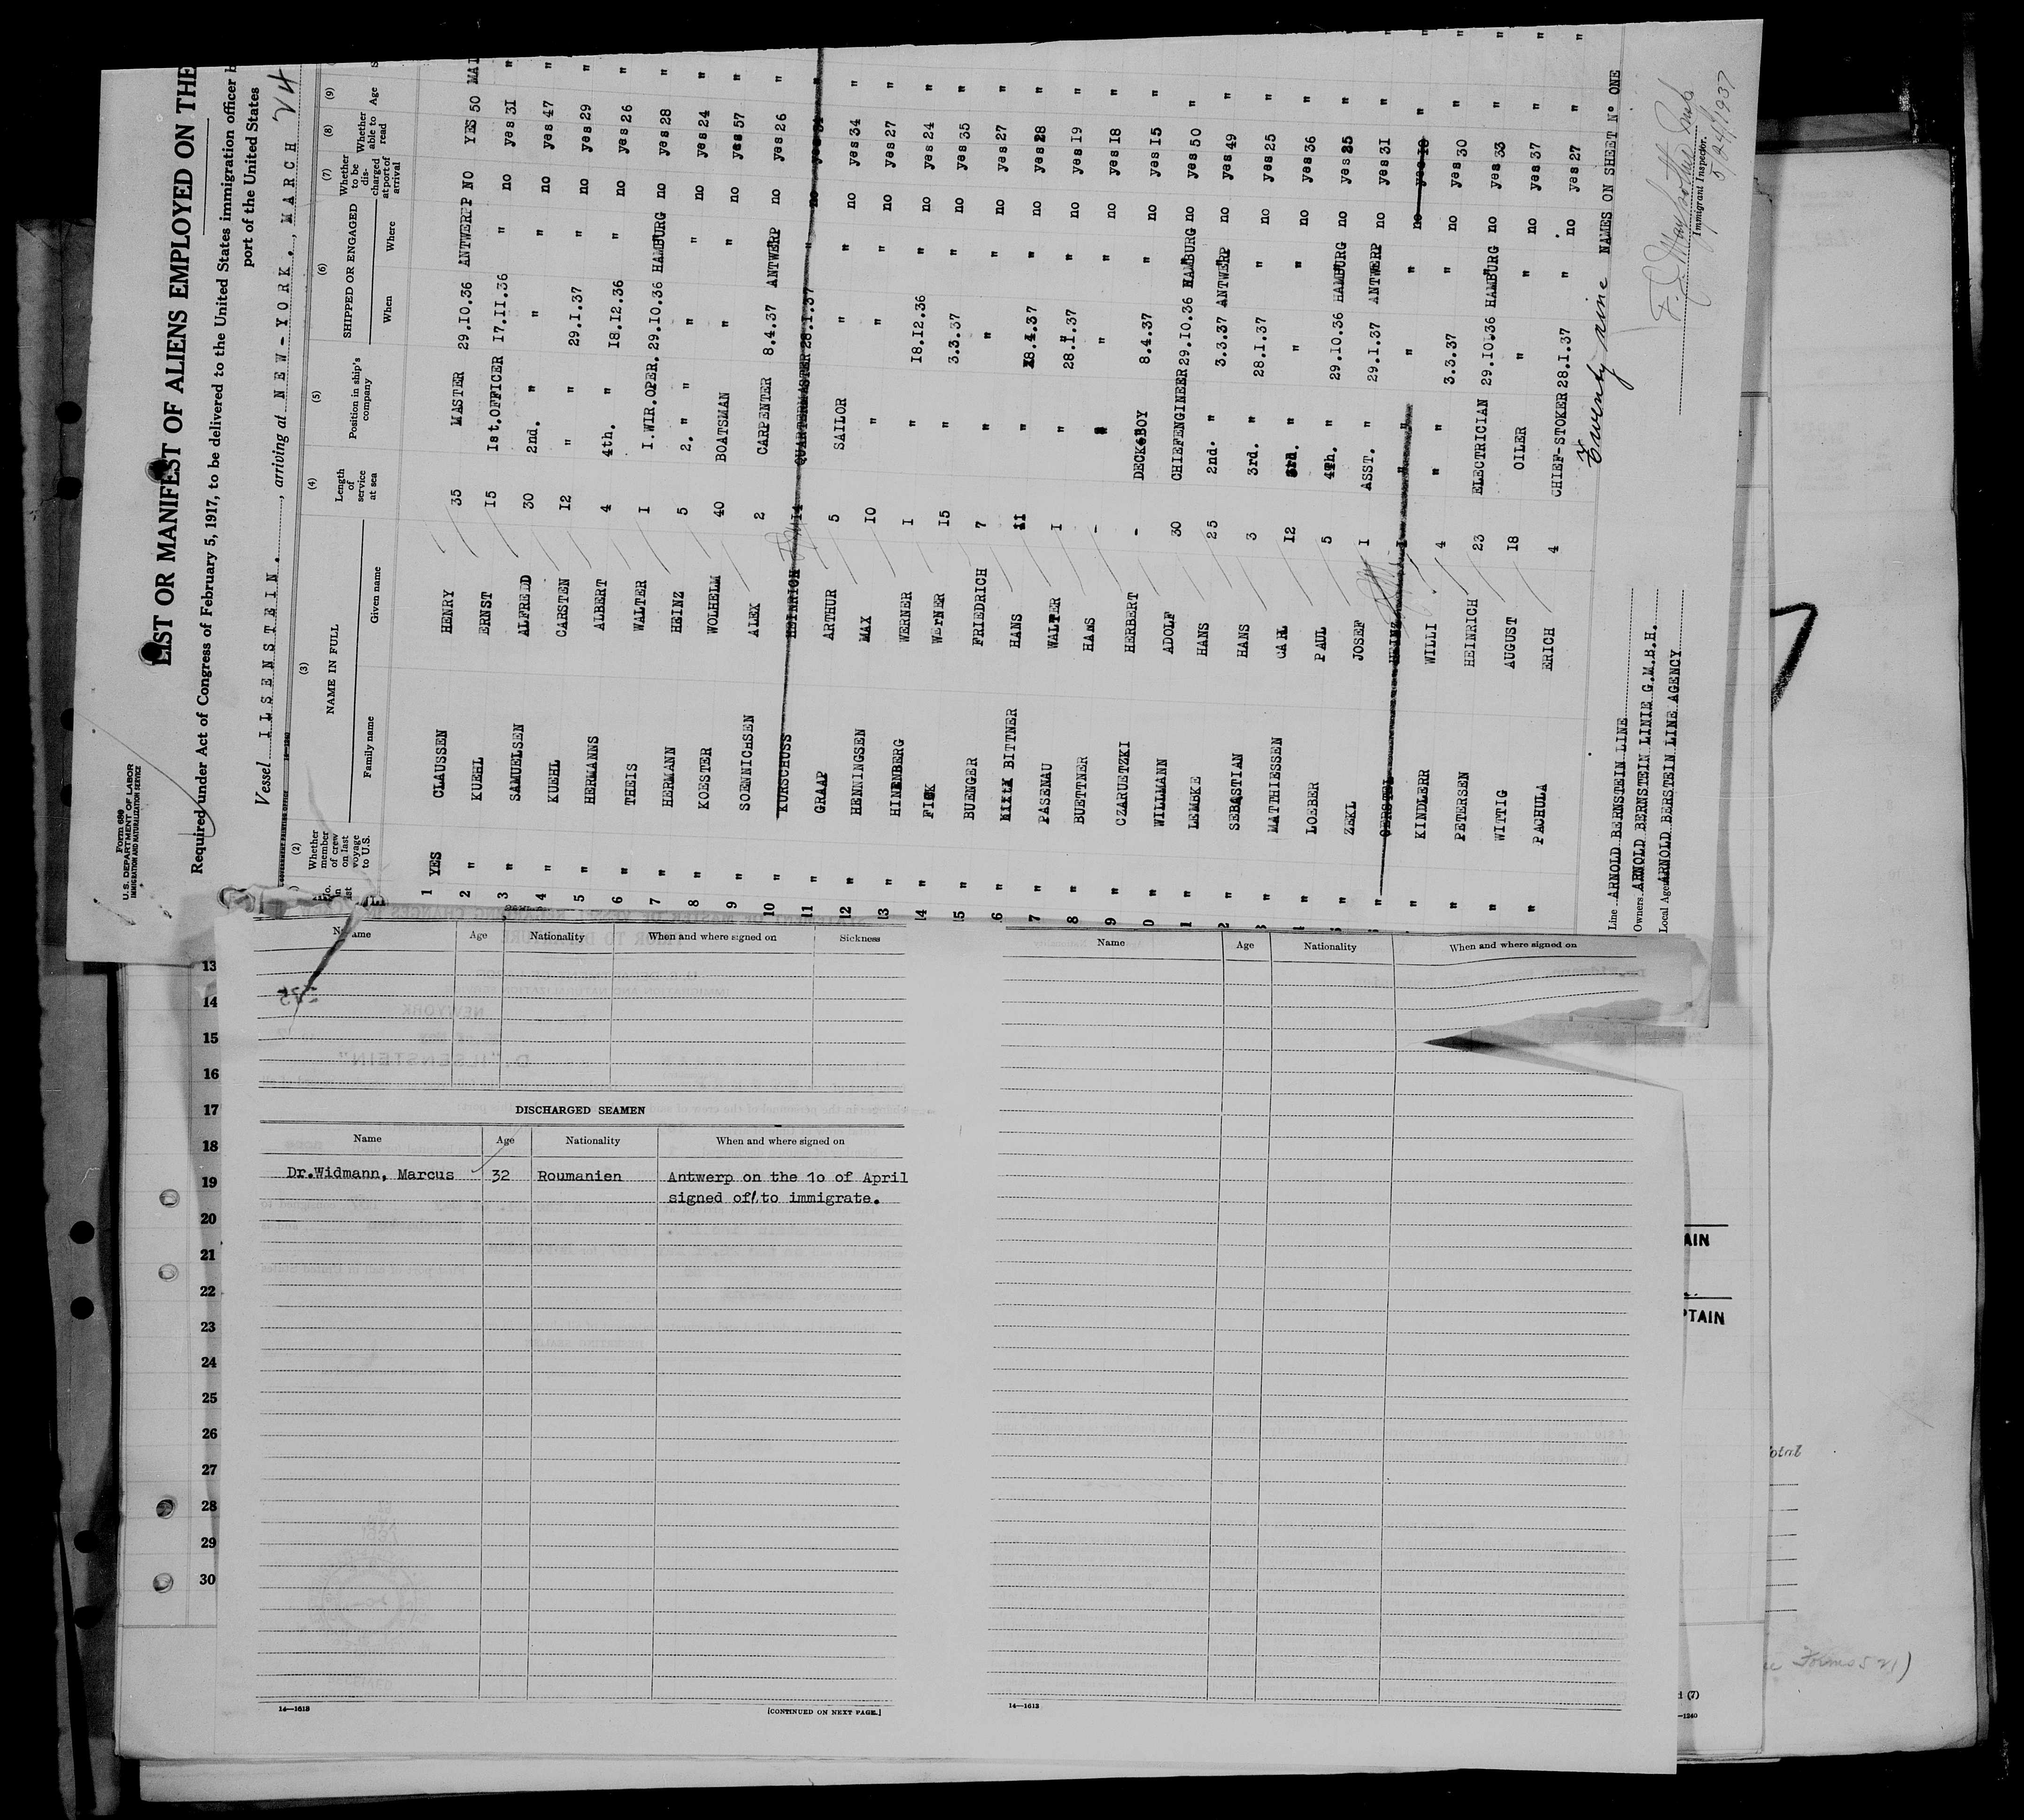 Form 689
U. S. DEPARTMENT OF LABOR
IMMIGRATION AND NATURALIZATION SERVICE
LIST OR MANIFEST OF ALIENS EMPLOYED ON THE
Required under Act of Congress of February 5, 1917, to be delivered to the United States immigration officer b
port of the United States
Vessel ILSENSTEIN. , arriving at NEW-YORK., MARCH 24
(2) (3) (4) (5) (6) (7) (8) (9)
Whether member of crew on last voyage to U.S. NAME IN FULL Length of service at sea Position in ship's company SHIPPED OR ENGAGED Whether to be discharged at port of arrival Whether able to read Age
Family name Given name When Where
1 YES CLAUSSEN HENRY 35 MASTER 29.10.36 ANTWERP NO YES 50 MAL
2 " KUEHL ERNST 15 Ist.OFFICER 17.11.36 " no yes 31 "
3 " SAMUELSEN ALFREDD 30 2nd. " " " no yes 47 "
4 " KUEHL CARSTEN 12 " " 29.I.37 " no yes 29 "
5 " HERMANNS ALBERT 4 4th. " 18.12.36 " no yes 26 "
6 " THEIS WALTER I I.WIR.OPER. 29.10.36 HAMBURG no yes 28 "
7 " HERMANN HEINZ 5 2. " " " " no yes 24 "
8 " KOESTER WOLHELM 40 BOATSMAN " " no yes 57 "
9 " SOENNICHSEN ALEX 2 CARPENTER 8.4.37 ANTWERP no yes 26 "
10 " KURSCHUSS HEINRICH 14 QUARTERMASTER 28.I.37 " no yes 31 "
11 " GRAAP ARTHUR 5 SAILOR " " no yes 34 "
12 " HENNINGSEN MAX 10 " " " no yes 27 "
13 " HINENBERG WERNER I " 18.12.36 " no yes 24 "
14 " FICK WERNER 15 " 3.3.37 " no yes 35 "
15 " BUENGER FRIEDRICH 7 " " " no yes 27 "
16 " BITTNER HANS 11 " 8.4.37 " no yes 28 "
17 " PASENAU WALTER I " 28.I.37 " no yes 19 "
18 " BUETTNER HANS - " " " no yes 18 "
9 " CZARUETZKI HERBERT - DECKBOY 8.4.37 " no yes 15 "
0 " WILLMANN ADOLF 30 CHIEFENGINEER 29.10.36 HAMBURG no yes 50 "
1 " LEMBKE HANS 25 2nd. " 3.3.37 ANTWERP no yes 49 "
2 " SEBASTIAN HANS 3 3rd. " 28.I.37 " no yes 25 "
" MATHIESSEN CARL 12 3rd. " " " no yes 36 "
" LOEBER PAUL 5 4th. " 29.10.36 HAMBURG no yes 25 "
" ZEKL JOSEF I ASST. " 29.I.37 ANTWERP no yes 31 "
" GERSTEL HEINZ I " " " no yes 18 "
" KINDLERR WILLI 4 " " 3.3.37 " no yes 30 "
" PETERSEN HEINRICH 23 ELECTRICIAN 29.10.36 HAMBURG no yes 33 "
" WITTIG AUGUST 18 OILER " " no yes 37 "
" PACHULA ERICH 4 CHIEF-STOKER 28.I.37 " no yes 27 "
Twenty nine NAMES ON SHEET No ONE
Line ARNOLD BERNSTEIN LINE
Owners ARNOLD BERNSTEIN LINIE G.M.B.H.
Local Agents ARNOLD BERSTEIN LINE AGENCY
Immigrant Inspector.
5/24/1937
Name Age Nationality When and where signed on Sickness
Name Age Nationality When and where signed on
13
14
15
16
17
18
19
20
21
22
23
24
25
26
27
28
29
30
DISCHARGED SEAMEN
Name Age Nationality When and where signed on
Dr.Widmann, Marcus 32 Roumanien Antwerp on the 1o of April
signed off, to immigrate.
14—1613 [CONTINUED ON NEXT PAGE.]
14—1613
AIN
PTAIN
Forms 521)
(7)
—1240